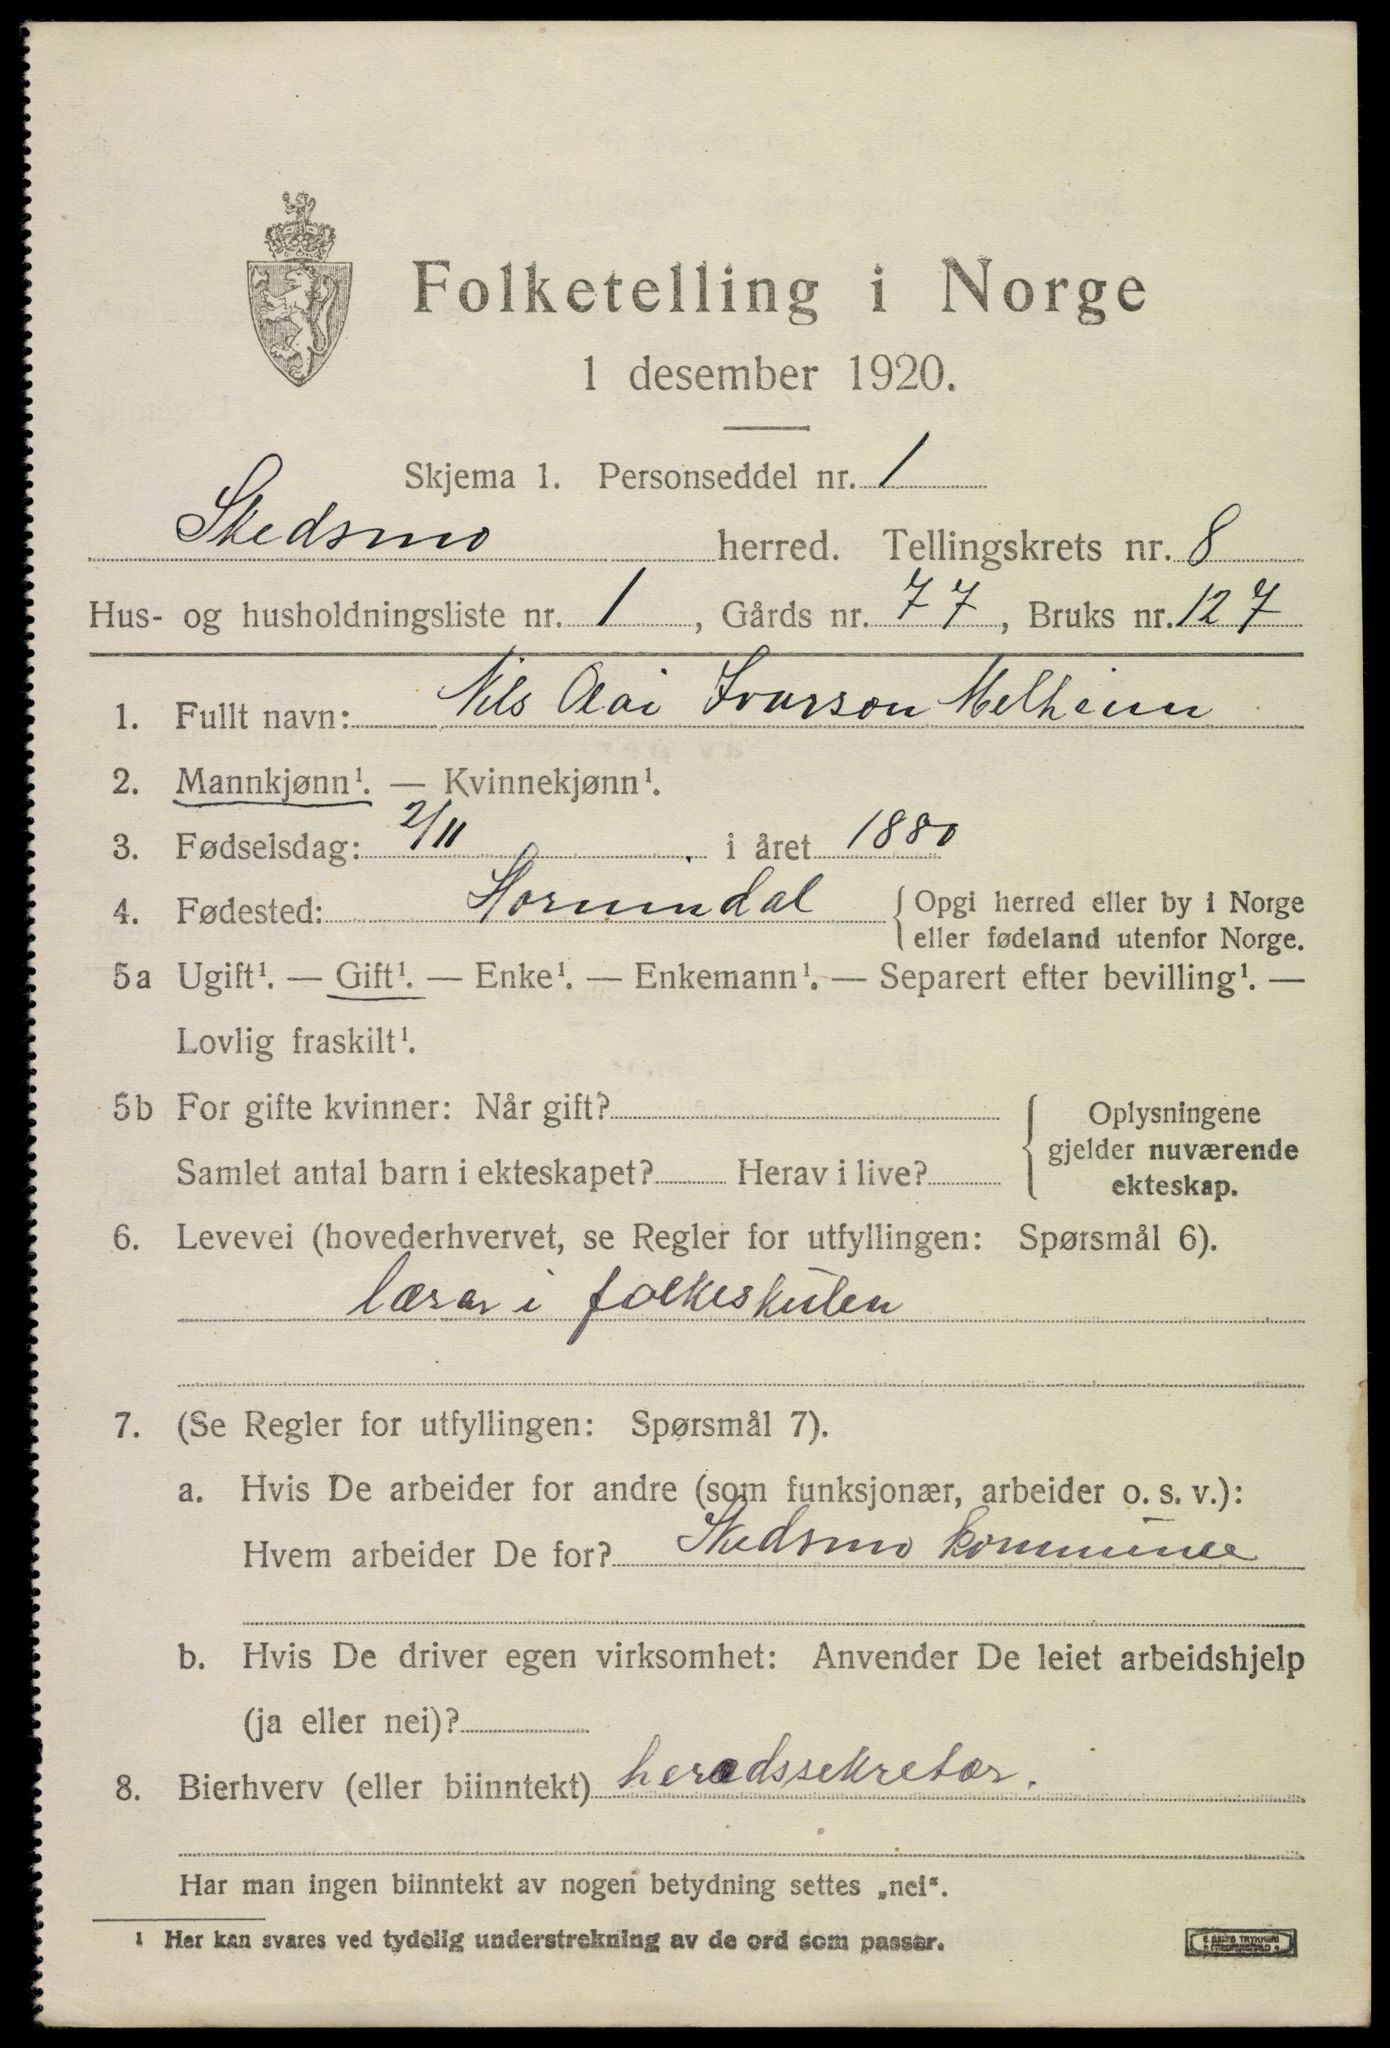 Folketelling i Norge
1 desember 1920.
Skjema 1. Personseddel nr. 1
Skedsmo herred. Tellingskrets nr. 8
Hus- og husholdningsliste nr. 1, Gårds nr. 77, Bruks nr. 127
1. Fullt navn: Nils Olai Ivarson Melheim
2. Mannkjønn¹. — Kvinnekjønn¹.
3. Fødselsdag: 2/11 i året 1880
4. Fødested: Hornindal { Opgi herred eller by i Norge
eller fødeland utenfor Norge.
5a Ugift¹. — Gift¹. — Enke¹. — Enkemann¹. — Separert efter bevilling¹. —
Lovlig fraskilt¹.
5b For gifte kvinner: Når gift?
Samlet antal barn i ekteskapet? Herav i live?
{ Oplysningene
gjelder nuværende
ekteskap.
6. Levevei (hovederhvervet, se Regler for utfyllingen: Spørsmål 6).
lærar i folkeskulen
7. (Se Regler for utfyllingen: Spørsmål 7).
a. Hvis De arbeider for andre (som funksjonær, arbeider o. s. v.):
Hvem arbeider De for? Skedsmo kommune
b. Hvis De driver egen virksomhet: Anvender De leiet arbeidshjelp
(ja eller nei)?
8. Bierhverv (eller biinntekt) heradssekretær.
Har man ingen biinntekt av nogen betydning settes „nei“.
¹ Her kan svares ved tydelig understrekning av de ord som passer.